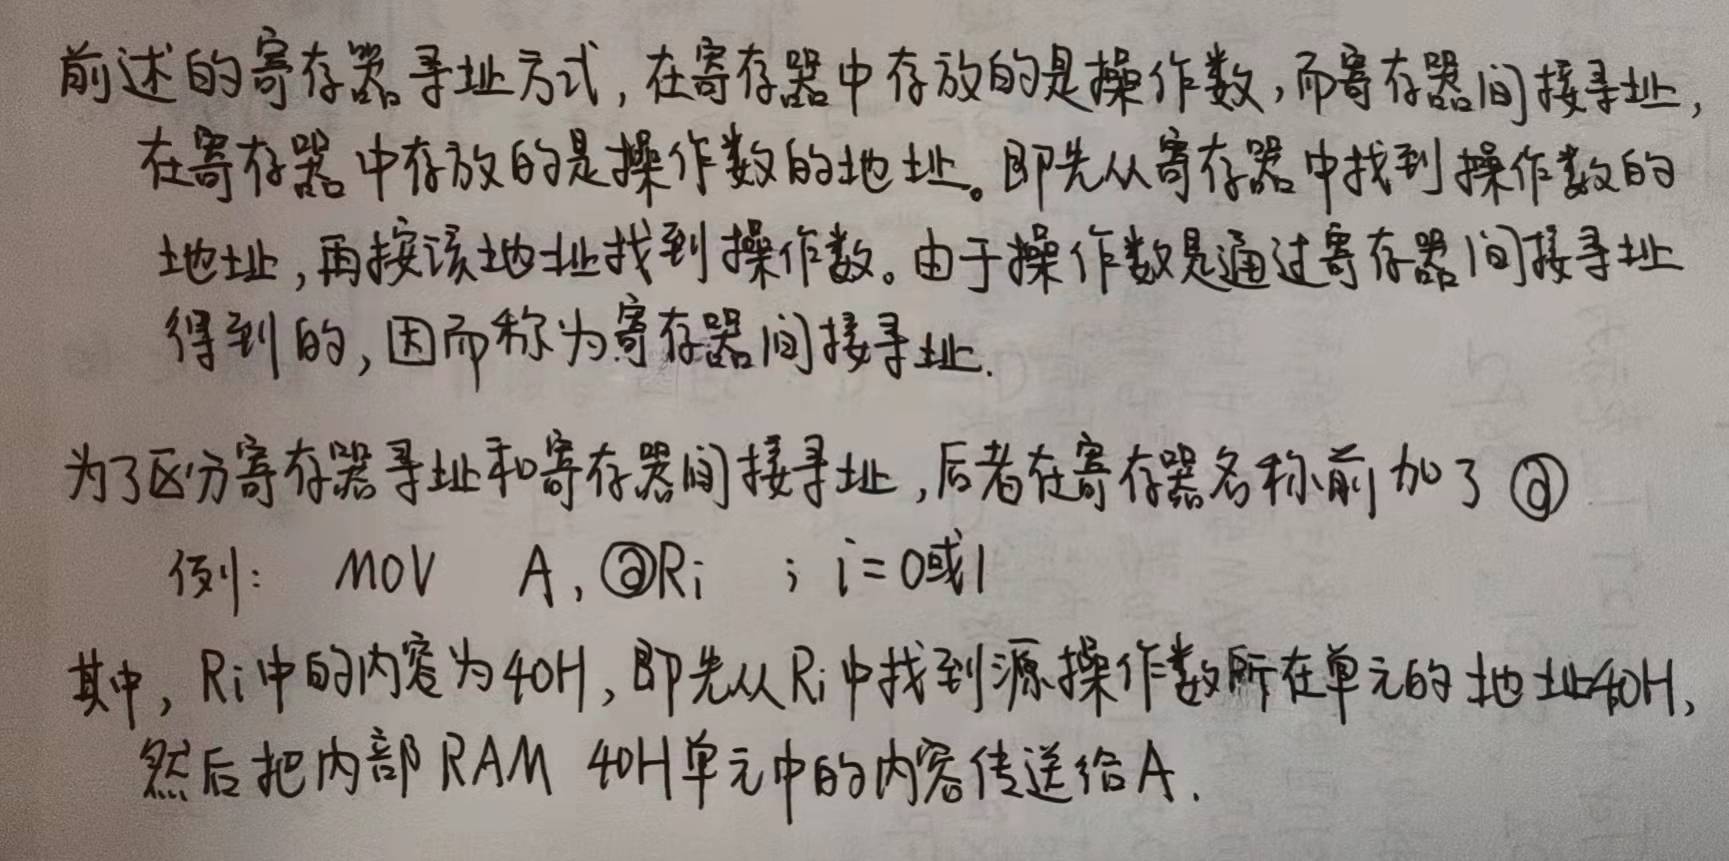 前述的寄存器寻址方式,在寄存器中存放的是操作数,而寄存器间接寻址,
在寄存器中存放的是操作数的地址。即先从寄存器中找到操作数的
地址,再按该地址找到操作数。由于操作数是通过寄存器间接寻址
得到的,因而称为寄存器间接寻址.
为了区分寄存器寻址和寄存器间接寻址,后者在寄存器名称前加了@
例: MOV A,@Ri ; i=0或1
其中,Ri中的内容为40H,即先从Ri中找到源操作数所在单元的地址40H,
然后把内部RAM 40H单元中的内容传送给A.